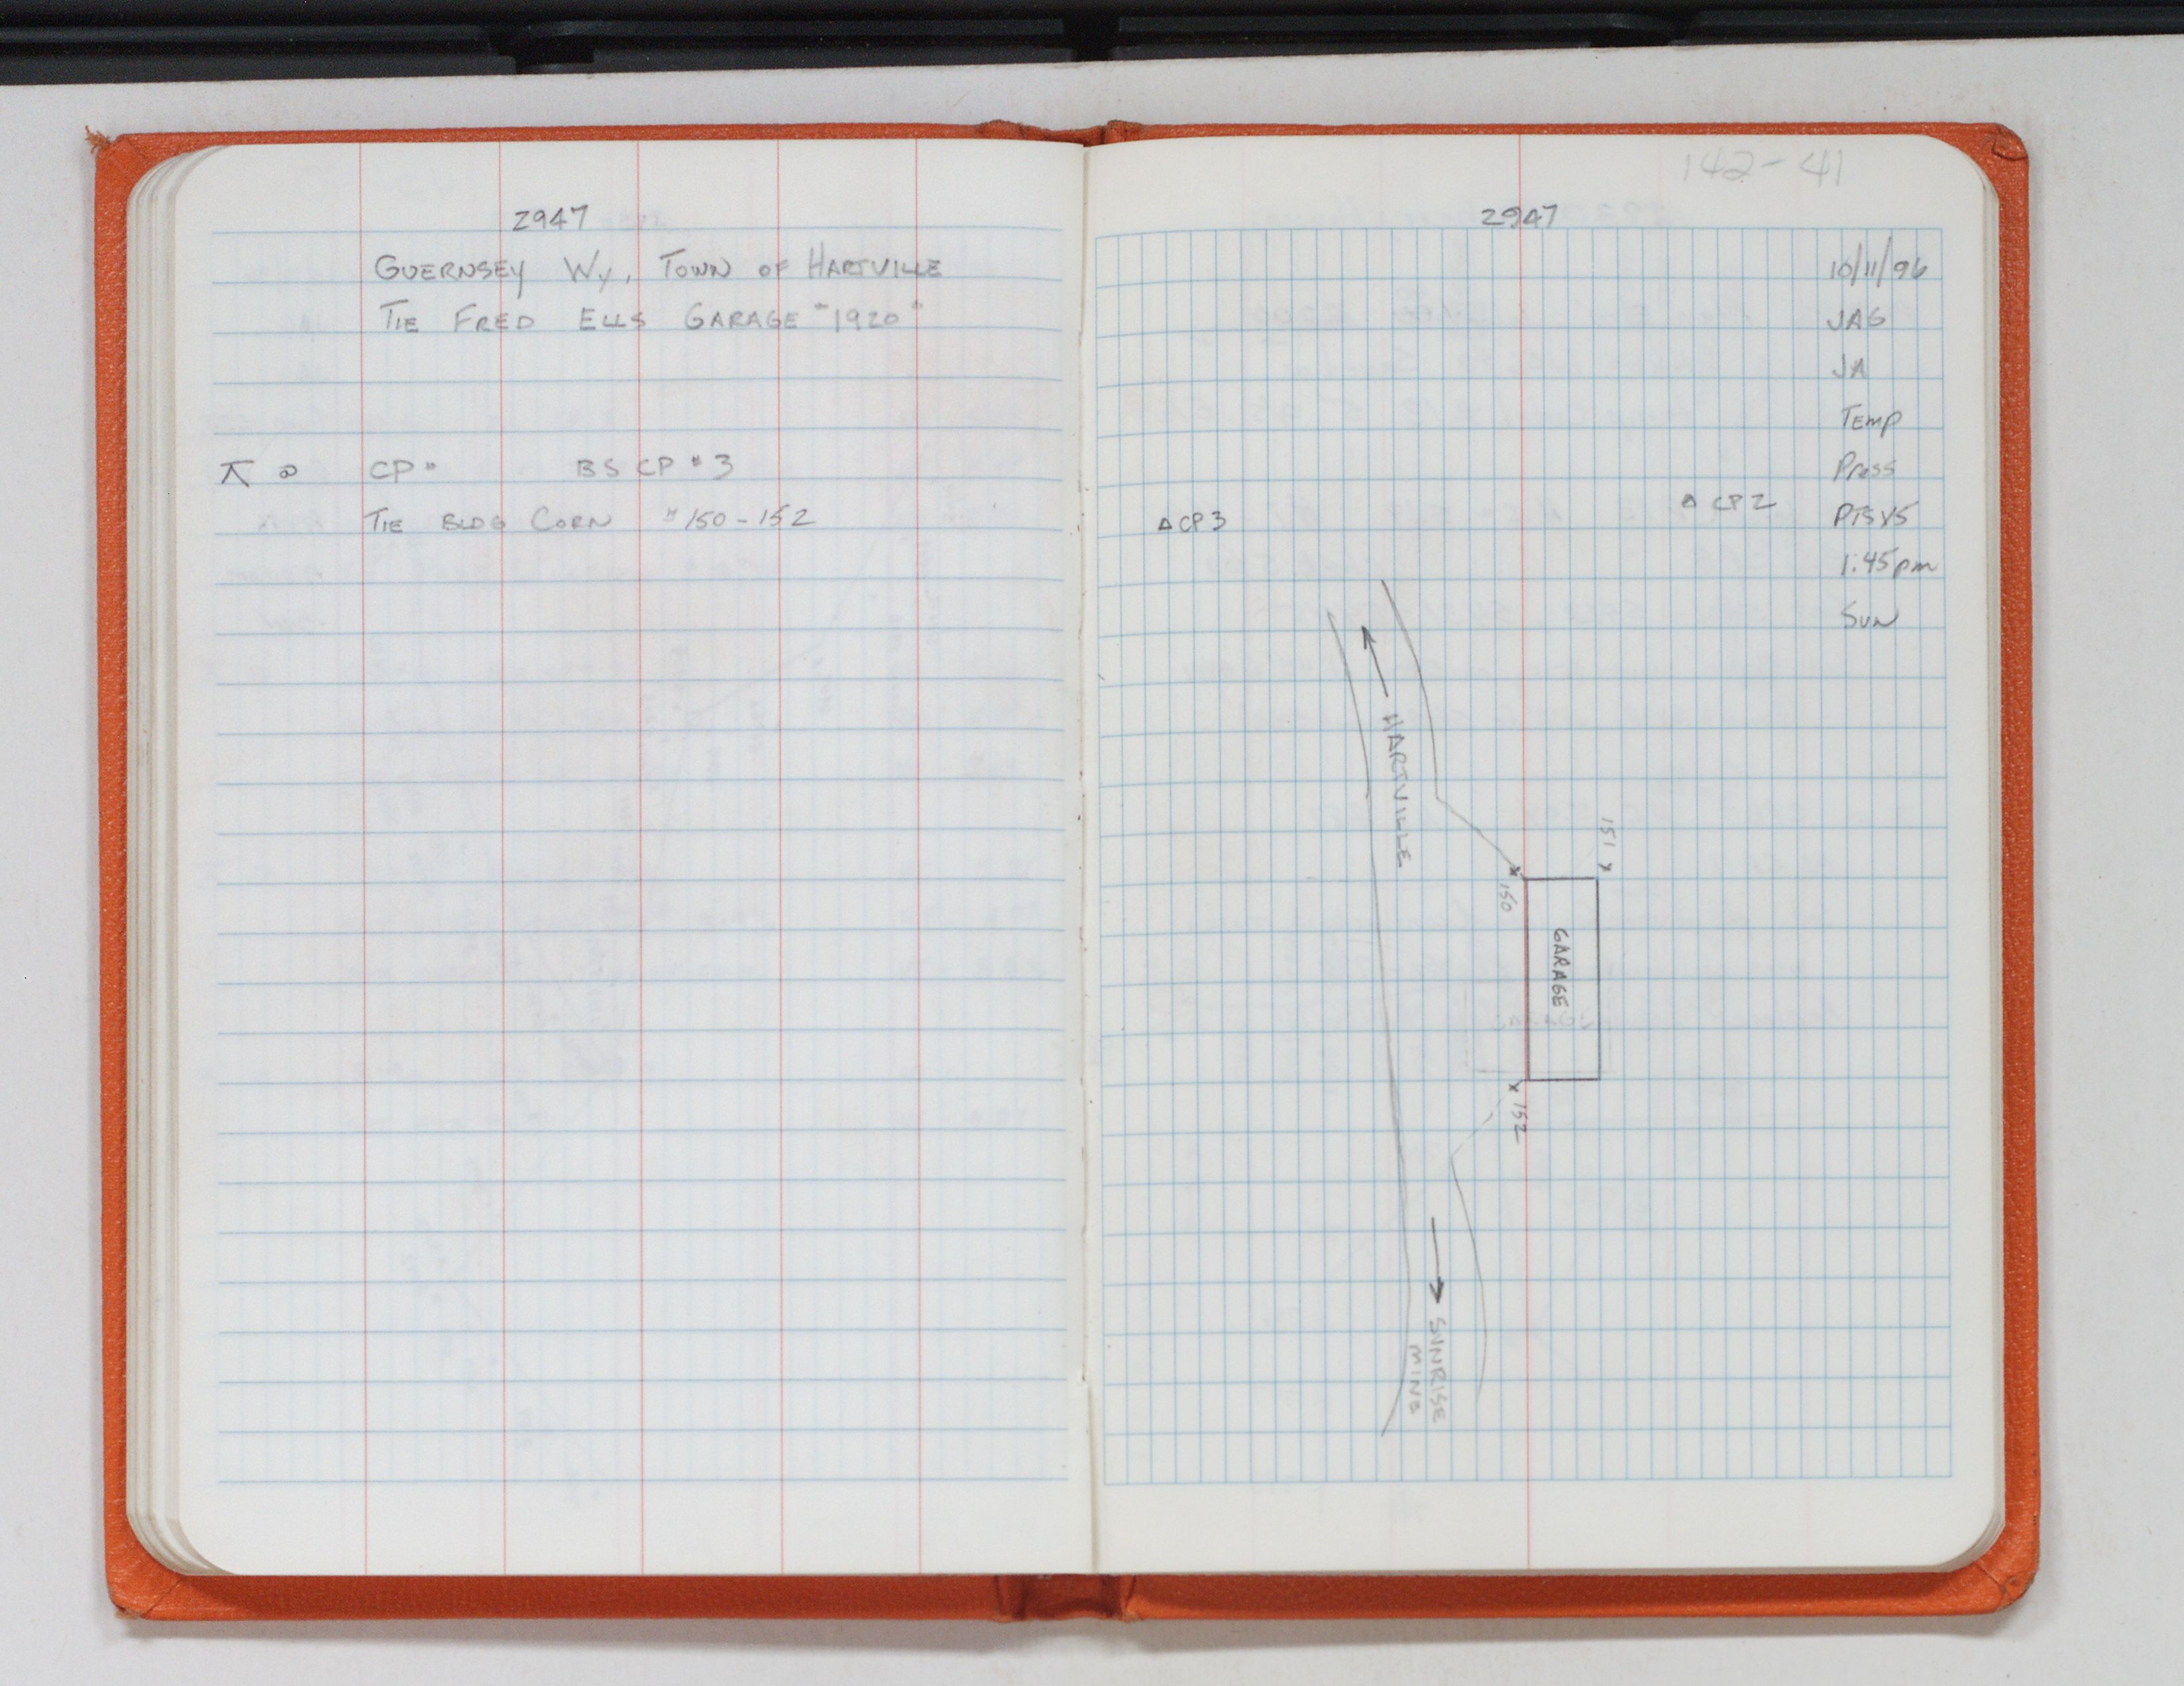 2947
GUERNSEY WY, TOWN OF HARTVILLE
TIE FRED ELLS GARAGE "1920"
⊼ @ CP# BS CP #3
TIE BLDG CORN #150-152
142-41
2947
10/11/96
JAG
JA
TEMP
PRESS
PTSX5
1:45pm
SUN
△ CP3
△ CP2
HARTVILLE
151 x
x 150
GARAGE
x 152
SUNRISE
MINE